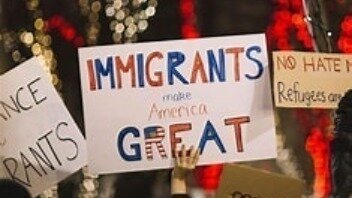 IMMIGRANTS
make
America
GREAT
NO HATE
Refugees are
ANCE
RANTS